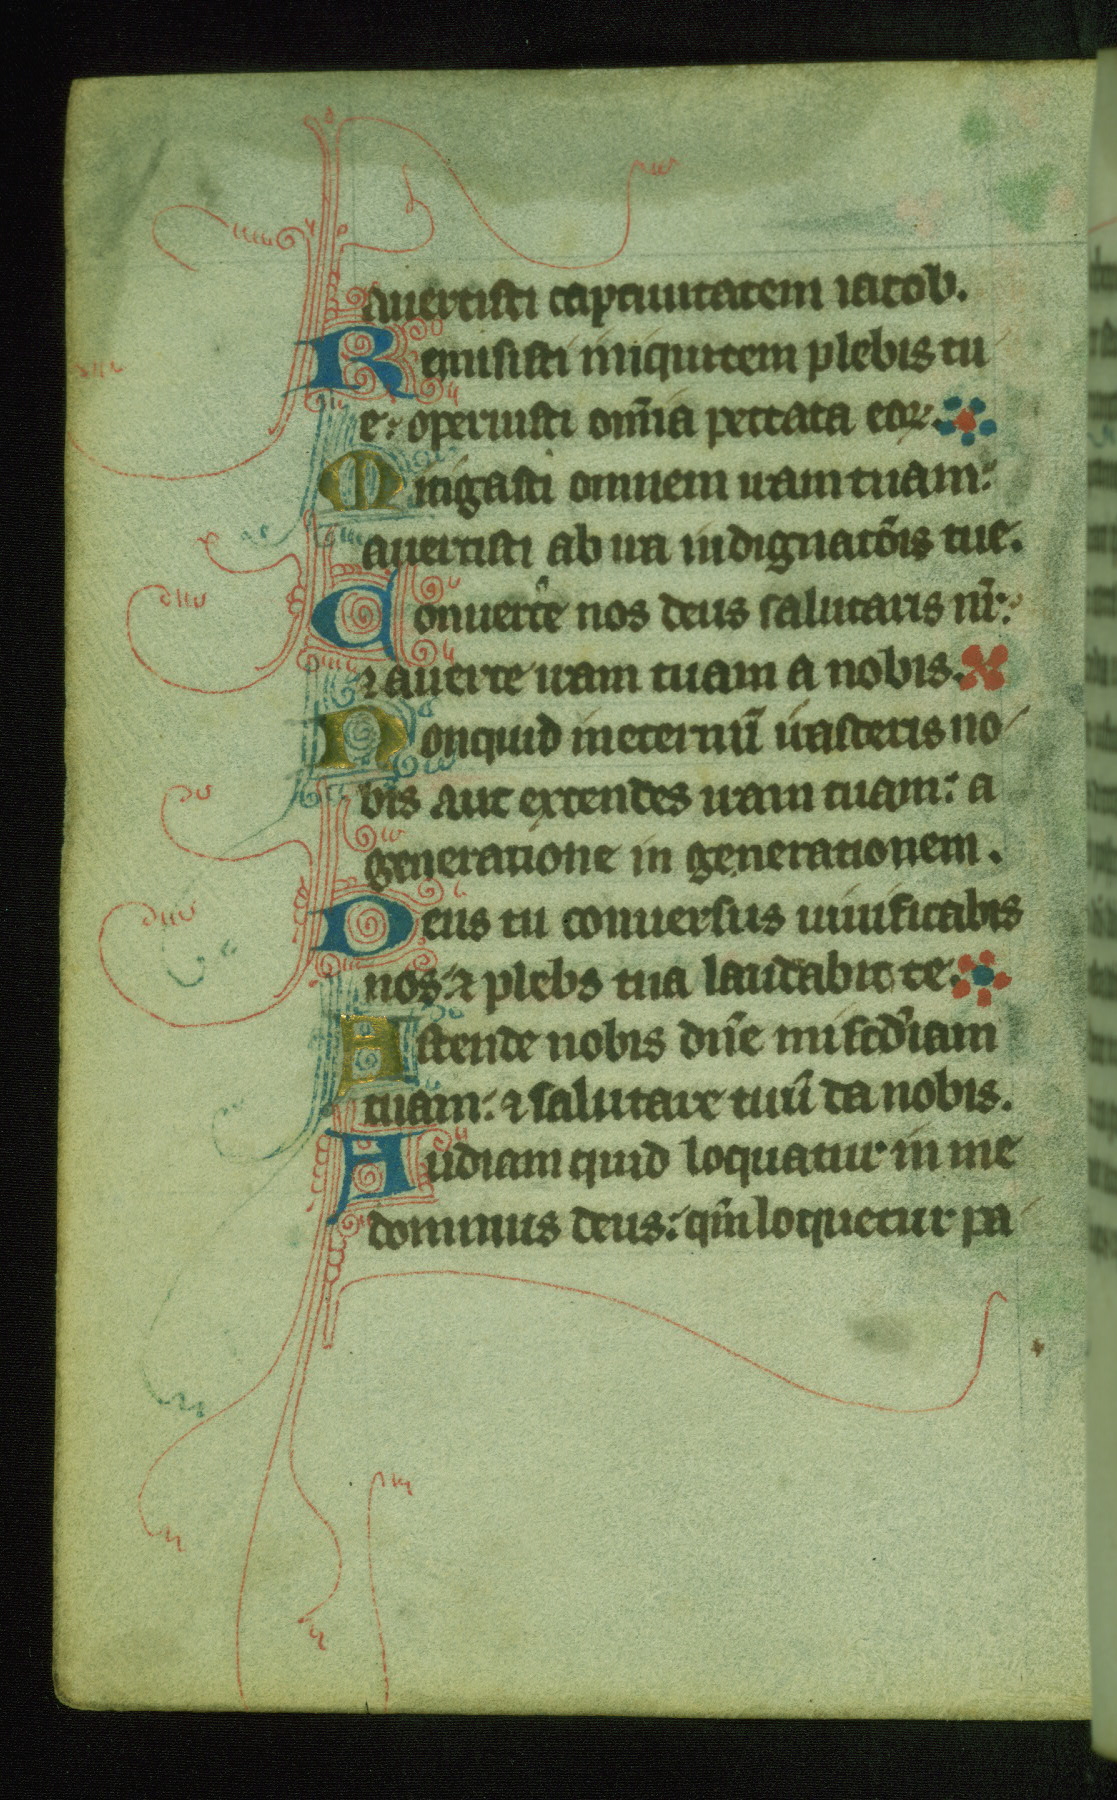 auertisti captiuitatem iacob.
Remisisti iniquitem plebis tu
e: operuisti om̄ia peccata eoꝝ.
Mitigasti omnem iram tuam:
auertisti ab ira indignatōis tue.
Conuerte nos deus salutaris nr̄:
⁊ auerte iram tuam a nobis.
Nonquid ineternū irasceris no
bis aut extendes iram tuam: a
generatione in generationem.
Deus tu conuersus uiuificabis
nos: ⁊ plebs tua laudabit te.
Astende nobis dn̄e misc̄diam
tuam: ⁊ salutare tuū da nobis.
Audiam quid loquatur in me
dominus deus: qm̄ loquetur pa